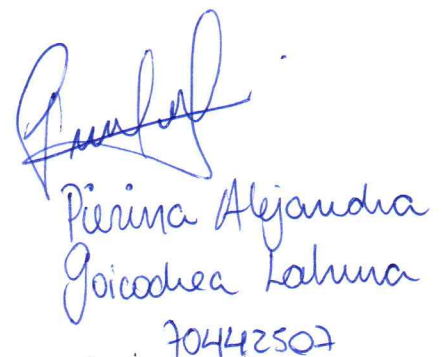 Pierina Alejandra
Goicochea Lahura
70442507